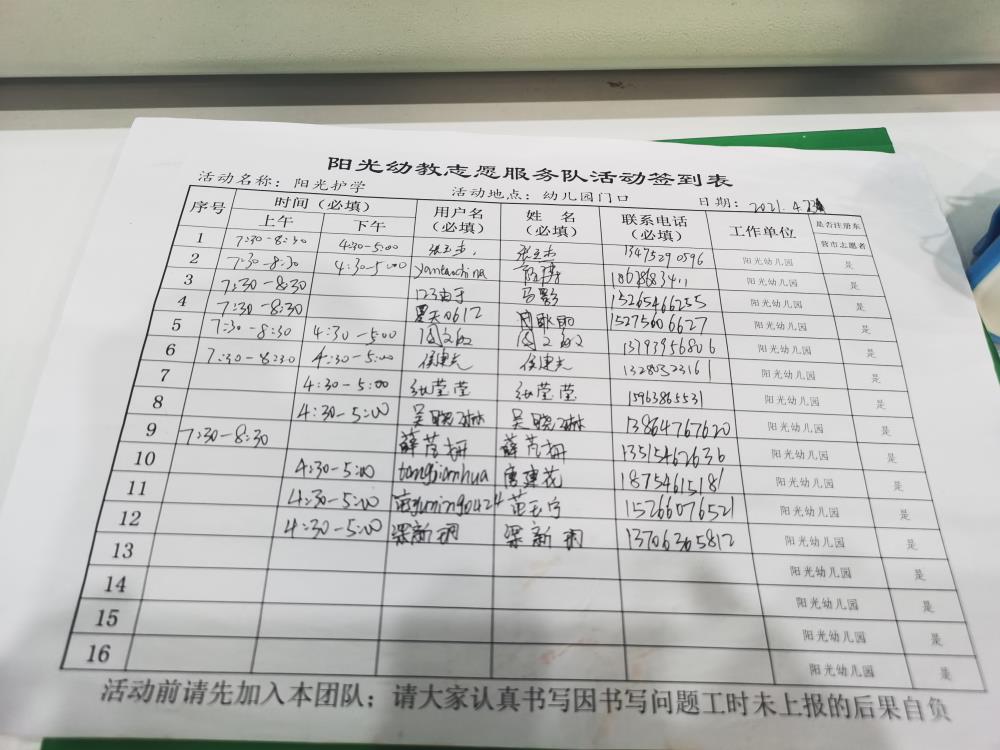 阳光幼教志愿服务队活动签到表
活动名称：阳光护学 活动地点：幼儿园门口 日期：2021.4.23
序号 时间（必填） 上午 下午 用户名（必填） 姓名（必填） 联系电话（必填） 工作单位 是否注册东营市志愿者
1 7:30-8:30 4:30-5:00 阳光幼儿园 是
2 7:30-8:30 4:30-5:00 yantaochina 阳光幼儿园 是
3 7:30-8:30 123由于 马影 15265466255 阳光幼儿园 是
4 7:30-8:30 夏天0612 15275606627 阳光幼儿园 是
5 7:30-8:30 4:30-5:00 13793956806 阳光幼儿园 是
6 7:30-8:30 4:30-5:00 13280323161 阳光幼儿园 是
7 4:30-5:00 张莹莹 张莹莹 15963865531 阳光幼儿园 是
8 4:30-5:00 吴晓琳 吴晓琳 13864767620 阳光幼儿园 是
9 7:30-8:30 13515462636 阳光幼儿园 是
10 4:30-5:00 tangjianhua 唐建花 18754615181 阳光幼儿园 是
11 4:30-5:00 15266076521 阳光幼儿园 是
12 4:30-5:00 梁新玥 梁新玥 13706365812 阳光幼儿园 是
13 阳光幼儿园 是
14 阳光幼儿园 是
15 阳光幼儿园 是
16 阳光幼儿园 是
活动前请先加入本团队；请大家认真书写因书写问题工时未上报的后果自负